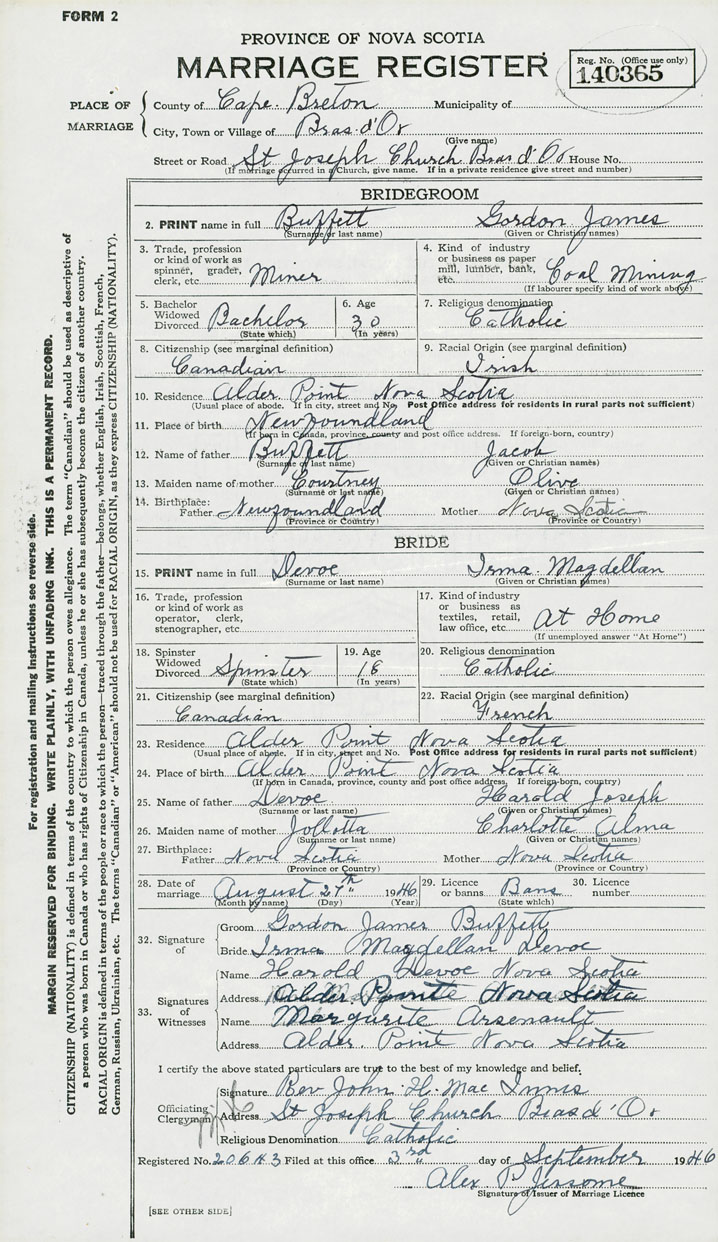 FORM 2
PROVINCE OF NOVA SCOTIA
MARRIAGE REGISTER
Reg. No. (Office use only)
140365
PLACE OF MARRIAGE
County of Cape Breton Municipality of
City, Town or Village of Bras d'Or
(Give name)
Street or Road St Joseph Church Bras d'Or House No.
(If marriage occurred in a Church, give name. If in a private residence give street and number)
BRIDEGROOM
2. PRINT name in full Buffett Gordon James
(Surname or last name) (Given or Christian names)
3. Trade, profession or kind of work as spinner, grader, clerk, etc. Miner
4. Kind of industry or business as paper mill, lumber, bank, etc. Coal Mining
(If labourer specify kind of work above)
5. Bachelor Widowed Divorced Bachelor
(State which)
6. Age 30
(In years)
7. Religious denomination
Catholic
8. Citizenship (see marginal definition)
Canadian
9. Racial Origin (see marginal definition)
Irish
10. Residence Alder Point Nova Scotia
(Usual place of abode. If in city, street and No. Post Office address for residents in rural parts not sufficient)
11. Place of birth Newfoundland
(If born in Canada, province, county and post office address. If foreign-born, country)
12. Name of father Buffett Jacob
(Surname or last name) (Given or Christian names)
13. Maiden name of mother Courtney Olive
(Surname or last name) (Given or Christian names)
14. Birthplace:
Father Newfoundland Mother Nova Scotia
(Province or Country) (Province or Country)
BRIDE
15. PRINT name in full Devoe Irma Magdellan
(Surname or last name) (Given or Christian names)
16. Trade, profession or kind of work as operator, clerk, stenographer, etc.
17. Kind of industry or business as textiles, retail, law office, etc. At Home
(If unemployed answer "At Home")
18. Spinster Widowed Divorced Spinster
(State which)
19. Age 18
(In years)
20. Religious denomination
Catholic
21. Citizenship (see marginal definition)
Canadian
22. Racial Origin (see marginal definition)
French
23. Residence Alder Point Nova Scotia
(Usual place of abode. If in city, street and No. Post Office address for residents in rural parts not sufficient)
24. Place of birth Alder Point Nova Scotia
(If born in Canada, province, county and post office address. If foreign-born, country)
25. Name of father Devoe Harold Joseph
(Surname or last name) (Given or Christian names)
26. Maiden name of mother Jollotta Charlotte Alma
(Surname or last name) (Given or Christian names)
27. Birthplace:
Father Nova Scotia Mother Nova Scotia
(Province or Country) (Province or Country)
28. Date of marriage August 27th 1946
(Month by name) (Day) (Year)
29. Licence or banns Bans
(State which)
30. Licence number
32. Signature of
Groom Gordon James Buffett
Bride Irma Magdellan Devoe
33. Signatures of Witnesses
Name Harold Devoe Nova Scotia
Address Alder Pointe Nova Scotia
Name Margurite Arsenault
Address Alder Point Nova Scotia
I certify the above stated particulars are true to the best of my knowledge and belief.
Officiating Clergyman
Signature Rev John H. Mac Innis
Address St Joseph Church Bras d'Or
Religious Denomination Catholic
Registered No. 20643 Filed at this office 3rd day of September 1946
Alex P Jessome
Signature of Issuer of Marriage Licence
[SEE OTHER SIDE]
For registration and mailing instructions see reverse side.
MARGIN RESERVED FOR BINDING. WRITE PLAINLY, WITH UNFADING INK. THIS IS A PERMANENT RECORD.
CITIZENSHIP (NATIONALITY) is defined in terms of the country to which the person owes allegiance. The term "Canadian" should be used as descriptive of
a person who was born in Canada or who has rights of Citizenship in Canada, unless he or she has subsequently become the citizen of another country.
RACIAL ORIGIN is defined in terms of the people or race to which the person—traced through the father—belongs, whether English, Irish, Scottish, French,
German, Russian, Ukrainian, etc. The terms "Canadian" or "American" should not be used for RACIAL ORIGIN, as they express CITIZENSHIP (NATIONALITY).